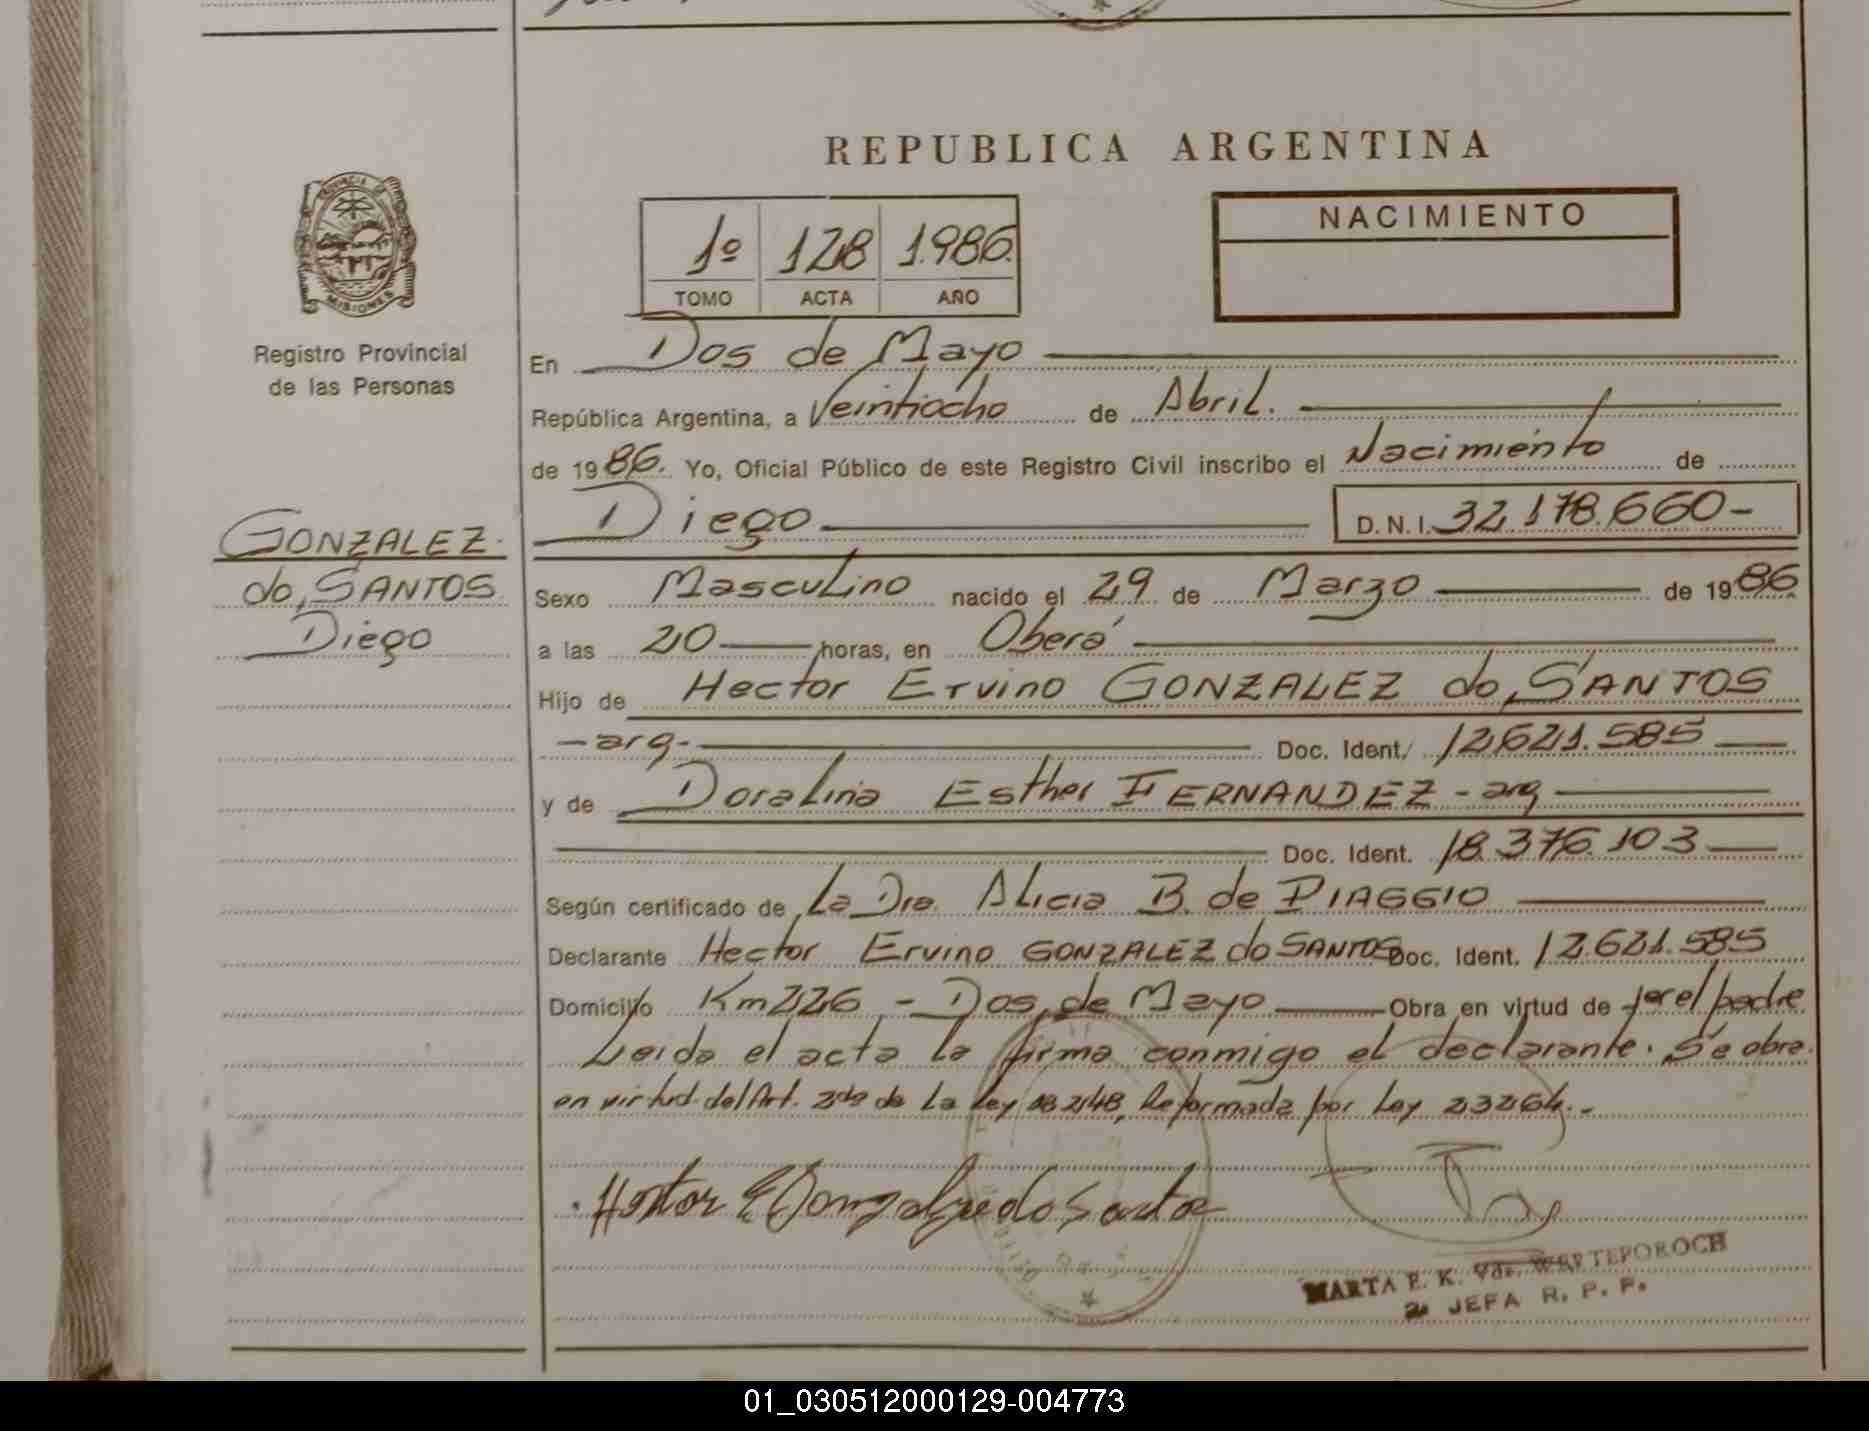 REPUBLICA ARGENTINA
PROVINCIA DE
MISIONES
Registro Provincial
de las Personas
1º 128 1.986.
TOMO ACTA AÑO
NACIMIENTO
En Dos de Mayo
República Argentina, a Veintiocho de Abril.
de 1986. Yo, Oficial Público de este Registro Civil inscribo el Nacimiento de
Diego D. N. I. 32.178.660-
GONZALEZ
do SANTOS
Diego
Sexo Masculino nacido el 29 de Marzo de 1986
a las 20 horas, en Oberá
Hijo de Hector Ervino GONZALEZ do SANTOS
-arg- Doc. Ident. 12.621.585
y de Doralina Esther FERNANDEZ - arg
Doc. Ident. 18.376.103
Según certificado de La Dra. Alicia B. de PIAGGIO
Declarante Hector Ervino GONZALEZ do SANTOS Doc. Ident. 12.621.585
Domicilio Km 226 - Dos de Mayo Obra en virtud de ser el padre
Leida el acta la firma conmigo el declarante. Se obra
en virtud del Art. 2do de la Ley 18.248, Reformada por Ley 23264.-
Hector E Gonzalez do Santos
MARTA E. K. Vda.
JEFA R. P. P.
01_030512000129-004773